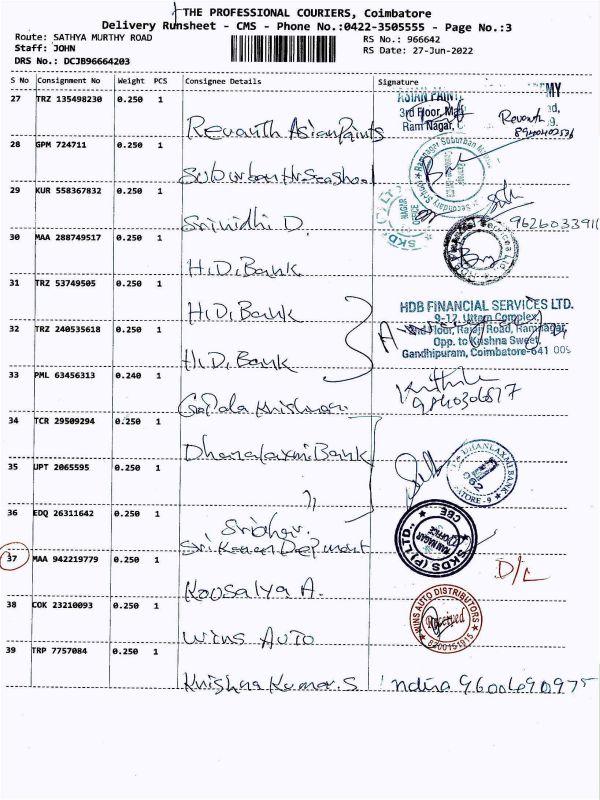 THE PROFESSIONAL COURIERS, Coimbatore
Delivery Runsheet - CMS - Phone No.:0422-3505555 - Page No.:3
Route: SATHYA MURTHY ROAD
RS No.: 966642
Staff: JOHN
RS Date: 27-Jun-2022
DRS No.: DCJB96664203
S No Consignment No Weight PCS Consignee Details Signature
27 TRZ 135498230 0.250 1
ASIAN PAINT
3rd Floor,
Ram Nagar,
Revanth
Revanth Asian Paints
28 GPM 724711 0.250 1
Suburban Hr Sec School
29 KUR 558367832 0.250 1
SKDS (P) LTD
NAGAR
OFFICE
Srinidhi D.
30 MAA 288749517 0.250 1
H.D. Bank
31 TRZ 53749505 0.250 1
H.D. Bank
HDB FINANCIAL SERVICES LTD.
9-12, Uttam Complex,
2nd Floor, Rajaji Road, Ramnagar,
Opp. to Krishna Sweet,
Gandhipuram, Coimbatore-641 009
32 TRZ 240535618 0.250 1
H.D. Bank
33 PML 63456313 0.240 1
Gopala Krishnan
34 TCR 29509294 0.250 1
Dhanalaxmi Bank
DHANLAXMI BANK
062
35 UPT 2065595 0.250 1
"
36 EDQ 26311642 0.250 1
Sridhar.
SKDS (P) LTD.,
RAM NAGAR
OFFICE
CBE
37 MAA 942219779 0.250 1
D/L
Kousalya A.
38 COK 23210093 0.250 1
WINS AUTO DISTRIBUTORS
Received
WINS AUTO
39 TRP 7757084 0.250 1
Krishna Kumar. S Indira 9600690975